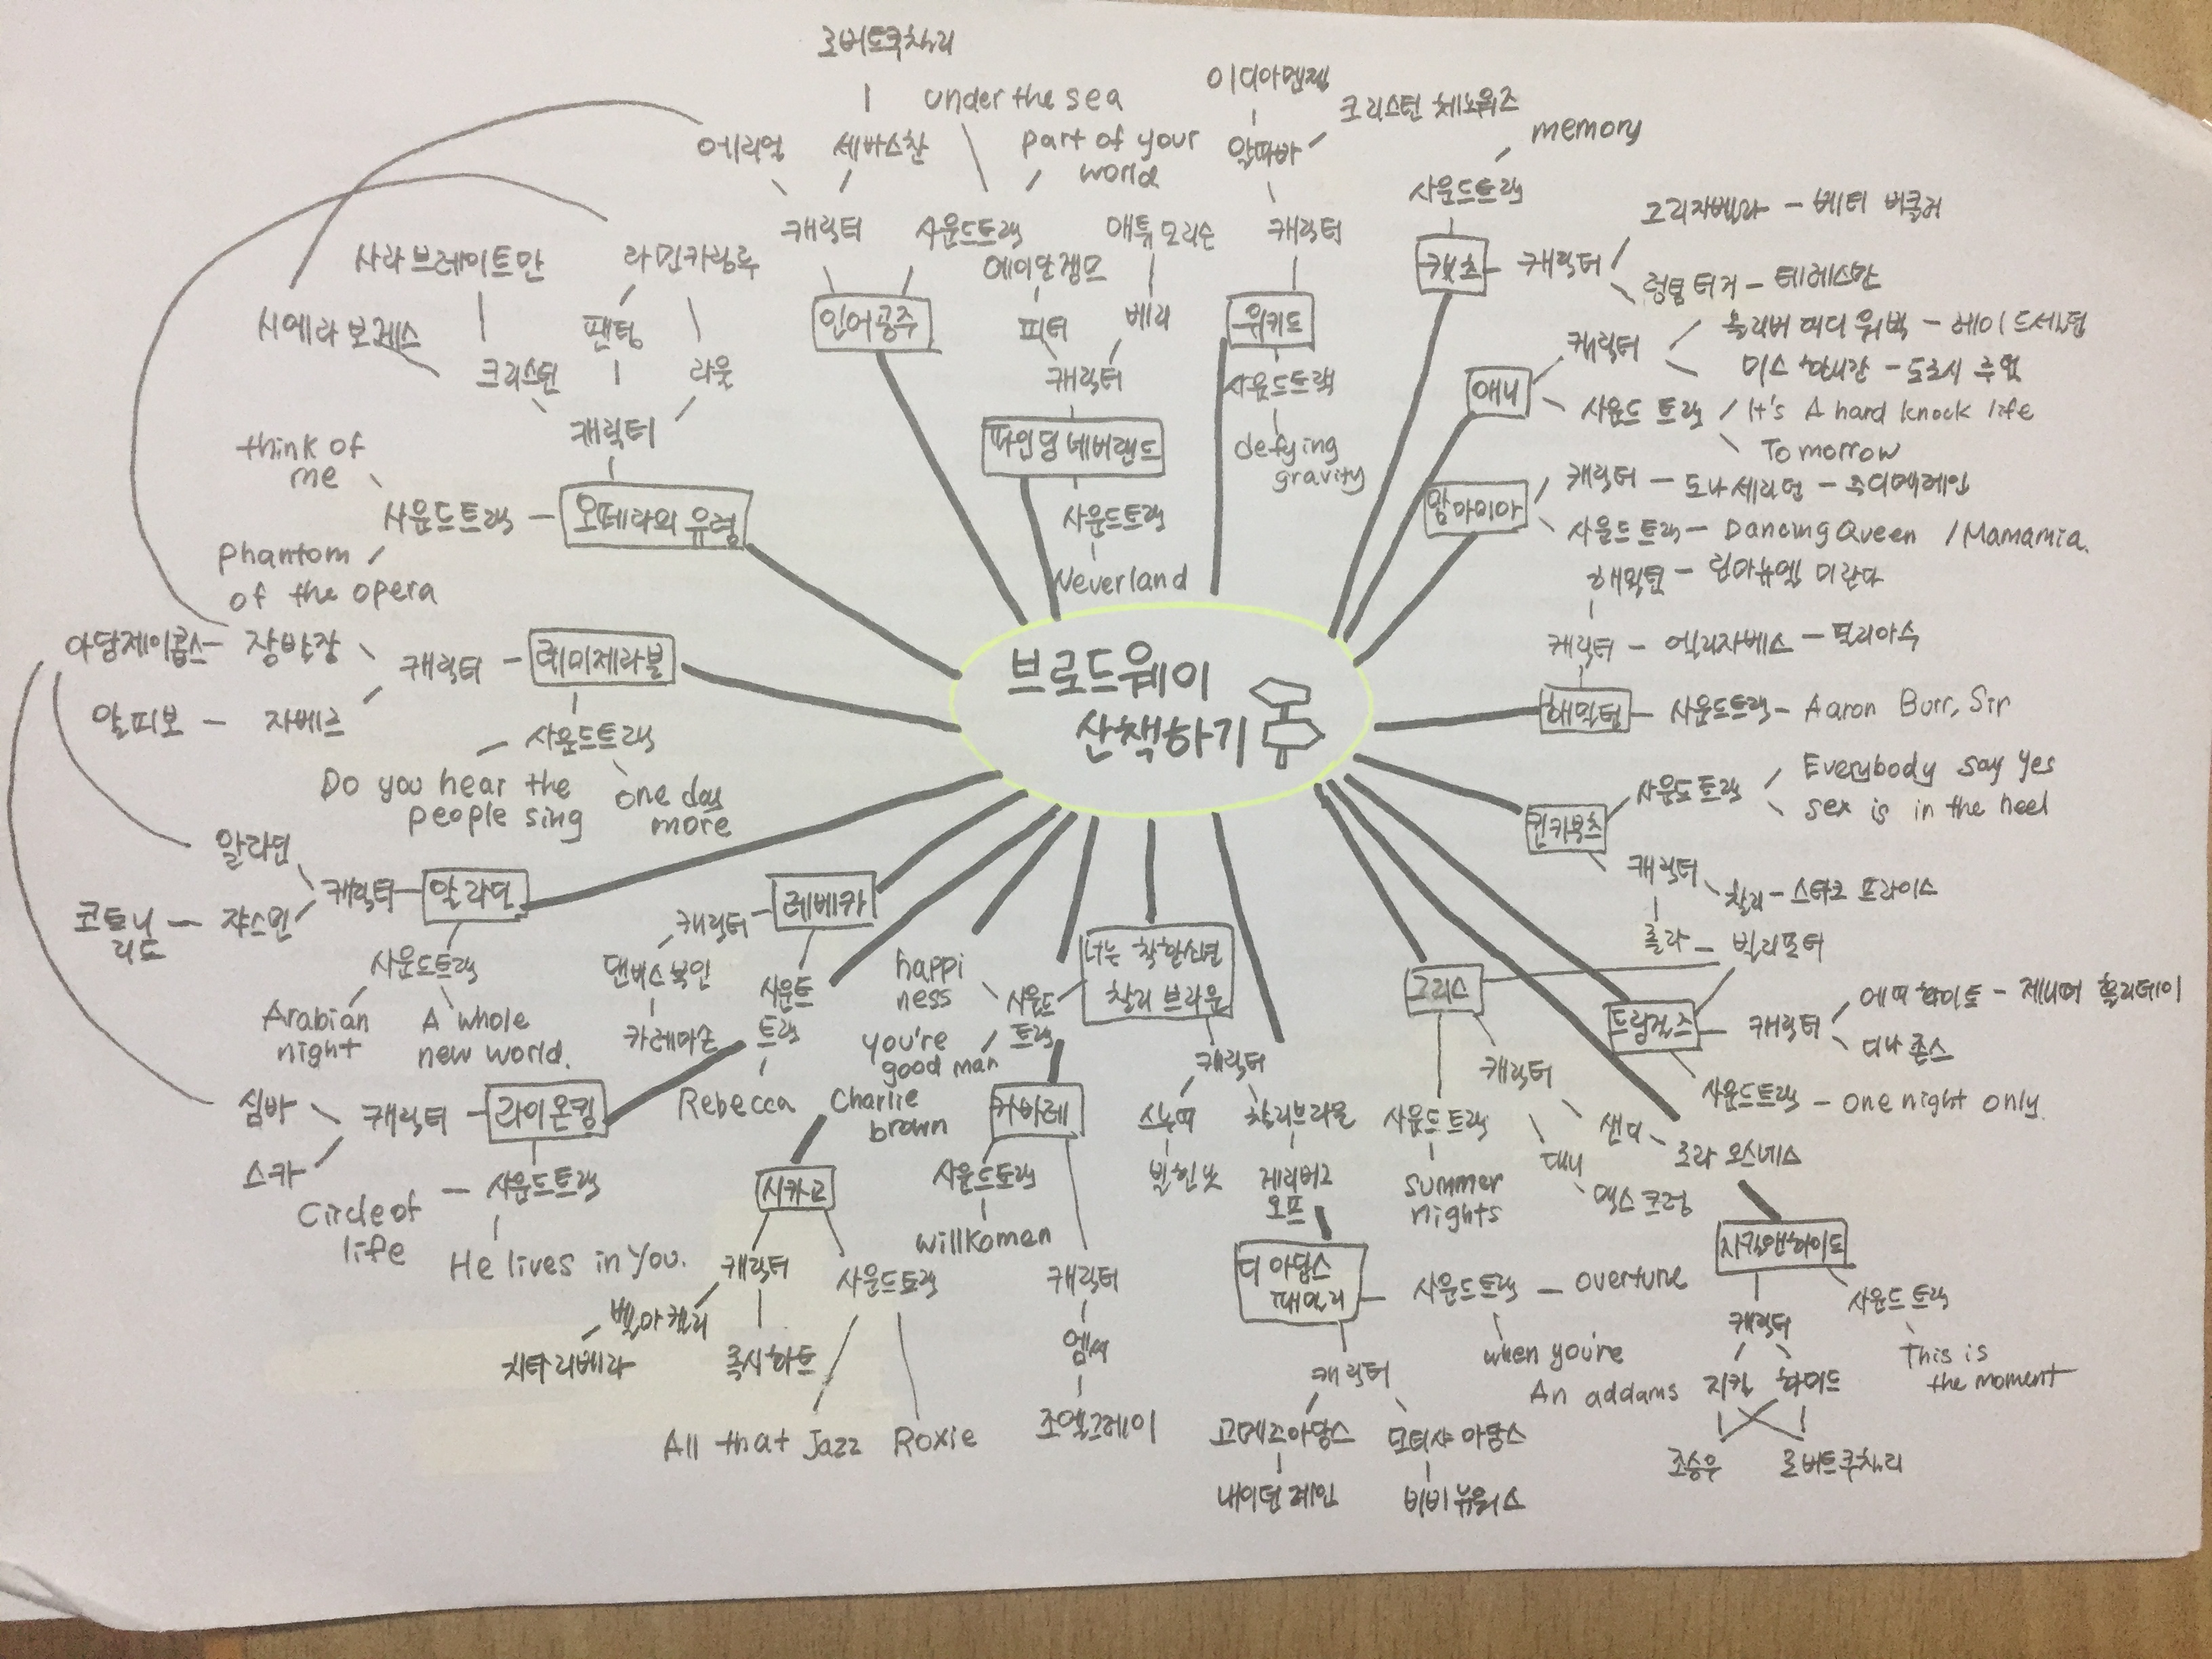 브로드웨이
산책하기
로버트쿠챌리
under the sea
part of your
world
에리얼
세바스찬
캐릭터
사운드트랙
인어공주
시에라 보게스
사라브레이트만
라민카림루
팬텀
크리스틴
라울
캐릭터
think of
me
사운드트랙
오페라의 유령
phantom
of the opera
에이단겜모
매튜모리슨
피터
베리
캐릭터
파인딩네버랜드
사운드트랙
Neverland
이디아멘젤
크리스틴 체노위즈
알파바
캐릭터
위키드
사운드트랙
defying
gravity
memory
사운드트랙
캣츠
캐릭터
그리자벨라 - 베티 버클리
럼텀 터거 - 테레스만
애니
캐릭터
올리버 대디 워벅 - 헤이드세넌
미스 해니간 - 도로시 루덩
사운드 트랙
It's A hard knock life
Tomorrow
맘마미아
캐릭터 - 도나셰리던 - 주디맥레인
사운드트랙 - Dancing Queen / Mamamia.
해밀턴 - 린마뉴엘 미란다
캐릭터 - 엘리자베스 - 필리아수
해밀턴
사운드트랙 - Aaron Burr, Sir
사운드트랙
Everybody say yes
sex is in the heel
킨키부츠
캐릭터
찰리 - 스타크 프라이스
롤라 - 빌리포터
드림걸즈
캐릭터
에피 화이트 - 제니퍼 홀리데이
디나 존스
사운드트랙 - one night only
그리스
캐릭터
사운드트랙
summer
nights
샌디
로라 오스네스
대니
맥스 크럼
지킬앤하이드
캐릭터
사운드트랙
This is
the moment
지킬
하이드
조승우
로버트쿠챌리
아담제이콥스 - 장발장
캐릭터
레미제라블
알피보 - 자베르
사운드트랙
Do you hear the
people sing
one day
more
알라딘
캐릭터
알라딘
코트니
리드
쟈스민
사운드트랙
Arabian
night
A whole
new world.
심바
캐릭터
라이온킹
스카
사운드트랙
Circle of
life
He lives in you.
레베카
캐릭터
댄버스부인
사운드
트랙
Rebecca
시카고
캐릭터
사운드트랙
벨마켈리
치타리베라
록시하트
All that Jazz
Roxie
너는 착한소년
찰리 브라운
사운드
트랙
happi
ness
you're
good man
Charlie
brown
캐릭터
스누피
빌힌낫
찰리브라운
게리버그
오프
카바레
사운드트랙
willkomen
캐릭터
엠씨
조엘그레이
디 아담스
패밀리
사운드트랙 - overture
when you're
An addams
캐릭터
고메즈아담스
네이던레인
모티샤 아담스
비비뉴워스